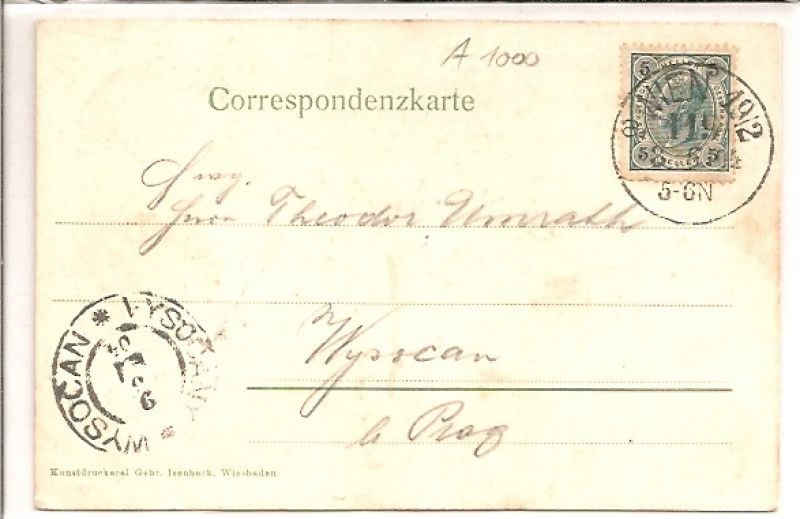 A 1000
Correspondenzkarte
5 5
5 5
WIEN 19/2
119
5-6N
Herrn Theodor Umrath
Wysocan
b Prag
VYSOČANY * WYSOČAN *
Kunstdruckerei Gebr. Isenbeck, Wiesbaden